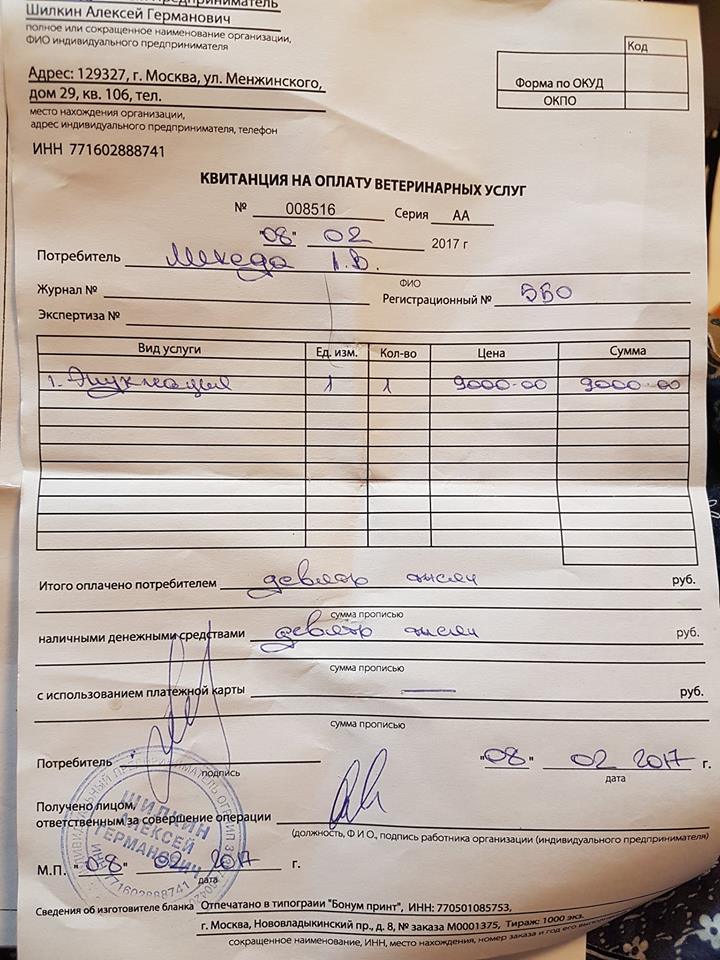 предприниматель
Шилкин Алексей Германович
полное или сокращенное наименование организации,
ФИО индивидуального предпринимателя
Адрес: 129327, г. Москва, ул. Менжинского,
дом 29, кв. 106, тел.
место нахождения организации,
адрес индивидуального предпринимателя, телефон
ИНН 771602888741
Код
Форма по ОКУД
ОКПО
КВИТАНЦИЯ НА ОПЛАТУ ВЕТЕРИНАРНЫХ УСЛУГ
№ 008516 Серия АА
"08" 02 2017 г
Потребитель
ФИО
Журнал № Регистрационный №
Экспертиза №
Вид услуги Ед. изм. Кол-во Цена Сумма
1. Энуклеация 1 1 9000-00 9000-00
Итого оплачено потребителем девять тысяч руб.
сумма прописью
наличными денежными средствами девять тысяч руб.
сумма прописью
с использованием платежной карты — руб.
сумма прописью
Потребитель "08" 02 2017 г.
подпись дата
Получено лицом,
ответственным за совершение операции
(должность, Ф И О., подпись работника организации (индивидуального предпринимателя)
ШИЛКИН
АЛЕКСЕЙ
ГЕРМАНОВИЧ
771602888741
М.П. "08" 02 2017 г.
дата
Сведения об изготовителе бланка Отпечатано в типограии "Бонум принт", ИНН: 770501085753,
г. Москва, Нововладыкинский пр., д. 8, № заказа М0001375, Тираж: 1000 экз.
сокращенное наименование, ИНН, место нахождения, номер заказа и год его